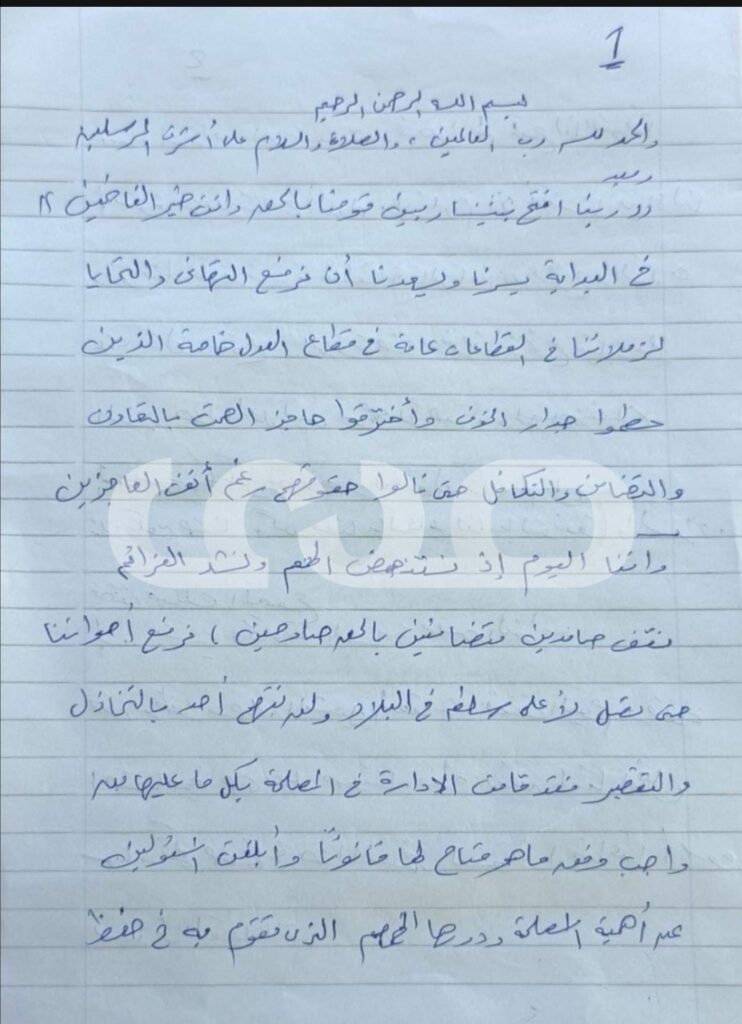 1
بسم الله الرحمن الرحيم
والحمد لله رب العالمين ، والصلاة والسلام على أشرف المرسلين
وبعد
(( ربنا افتح بيننا وبين قومنا بالحق وانت خير الفاتحين ))
في البداية يسرنا ويسعدنا أن نرفع التهاني والتحايا
لزملائنا في القطاعات عامة في قطاع العدل خاصة الذين
حطموا جدار الخوف وأخترقوا حاجز الصمت بالتعاون
والتضامن والتكافل حتى نالوا حقوقهم رغم أنف العاجزين
وأننا اليوم إذ نستنهض الهمم ونشد العزائم
نقف صامدين متضامنين بالحق صادحين ، نرفع أصواتنا
حتى تصل لأعلى سلطه في البلاد ولن نتهم أحد بالتخاذل
والتقصير فقد قامت الادارة في المصلحة بكل ما عليها من
واجب وفق ماهو متاح لها قانونًا وأبلغت المسؤولين
عن أهمية المصلحة ودورها المهم الذي تقوم به في حفظ
صدى